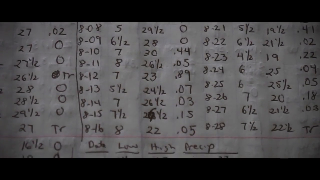 27 .02 8-08 5 29½ 0 8-21 5½ 19½ .41
27 0 8-09 6½ 28 0 8-22 6½ 21½ .02
27½ 0 8-10 7 30 .44 8-23 4½ 19 .22
26½ Tr 8-11 8 26½ .05 8-24 6 25 .04
28 0 8-12 7 23 .89 8-25 6 25½ .05
28½ 0 8-13 5½ 24½ .07 8-26 7 20 .18
29½ 0 8-14 7 26½ .03 8-27 6½ 21½ .03
27 Tr 8-15 7½ .15 8-28 7½ 22½ Tr
8-16 8 22 .05
16½ 0 Date Low High Precip